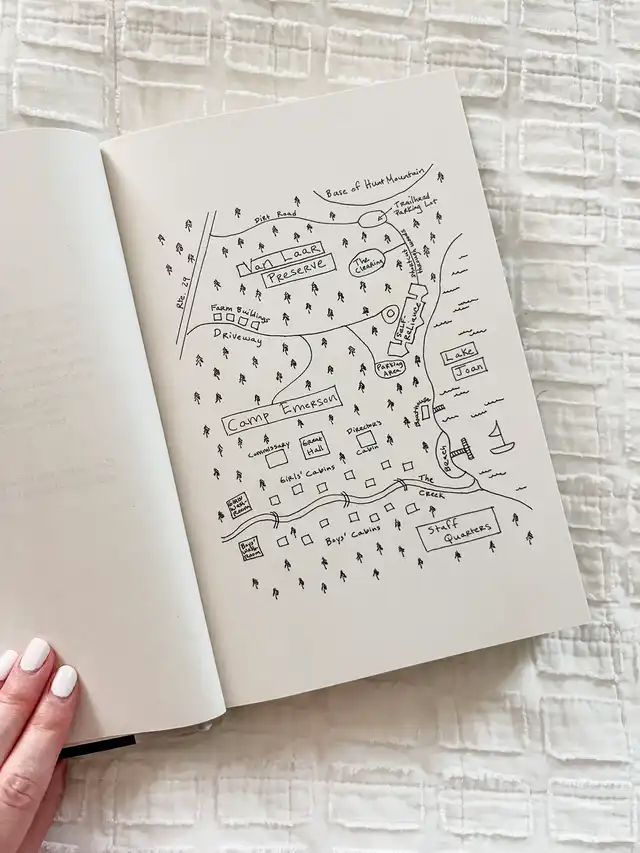 Base of Hunt Mountain
Trailhead
Parking Lot
Dirt Road
Van Laar
Preserve
The
Clearing
through woods
Rte. 29
Farm Buildings
Driveway
Self
Reliance
Parking
Area
Lake
Joan
Camp Emerson
Boathouse
Commissary
Great
Hall
Director's
Cabin
Beach
Girls' Cabins
The
Creek
Girls'
Wash
Room
Boys'
Wash
Room
Boys' Cabins
Staff
Quarters